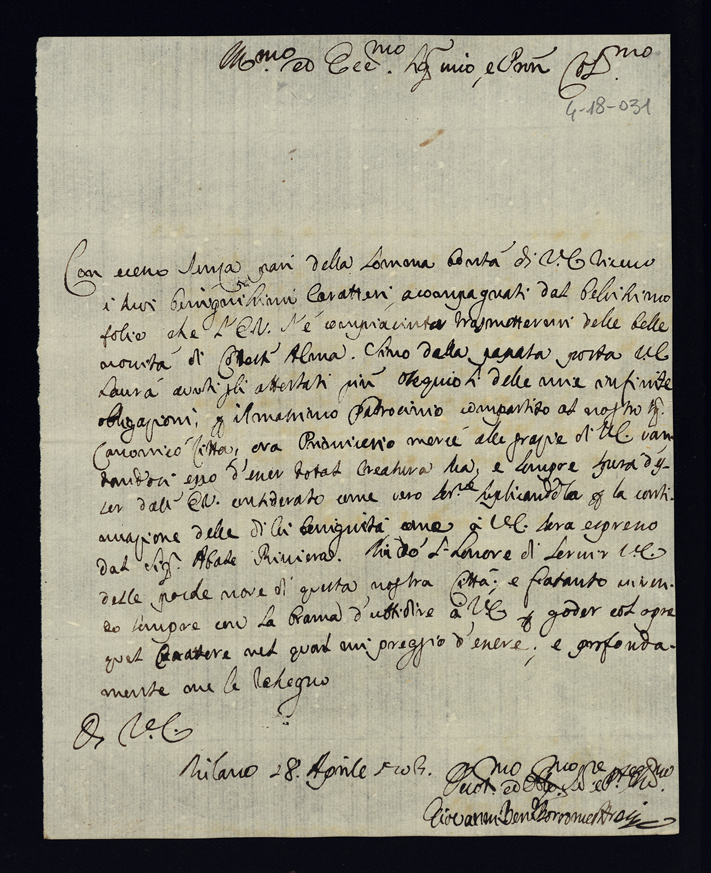 Ill.mo ed Ecc.mo Sig. mio, e Pron Col.mo
4-18-031
Con eccesso senza pari della somma bontà di V.E. ricevo
i suoi benignissimi Caratteri acompagnati dal bellissimo
folio che l'E.V. s'è compiaciuta trasmettermi delle belle
novità di Alma. Sino dalla papata posta VE
haurà auti gli attestati più ossequiosi delle mie infinite
obligazioni, p il massimo Patrocinio compartito al nostro Sig.
Canonico Citta, ora Primicerio mercè alle grazie di VE van
tandosi esso d'esser total Creatura Sua, e sempre spera d'es-
ser dall' E.V. considerato come vero Ser.re suplicandola p la conti-
nuazione delle di lei benignità come à VE. sera espresso
dal Sig. Abate Riviera. l'honore di servir VE
delle poche nove di questa nostra Città; e fratanto viven-
do sempre con la brama d'ubbidire à VE p goder col opre
quel Carattere nel qual mi preggio d'essere, e profonda-
mente me le rasegno
Di V.E.
Milano 28. Aprile
Giovanni Ben. Borromeo Arese